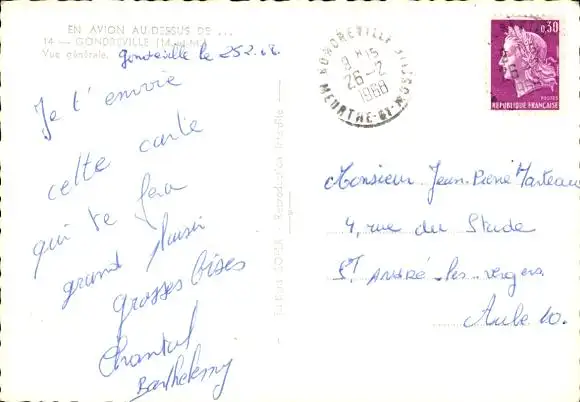 EN AVION AU-DESSUS DE ...
14 — GONDREVILLE (M.-et-M.)
Vue générale.
Gondreville le 25.2.68
Je t'envoie
cette carte
qui te fera
grand plaisir
grosses bises
Chantal
Barthelemy
GONDREVILLE
9 H 15
26-2
1968
MEURTHE-ET-MOSELLE
0,30
POSTES
REPUBLIQUE FRANÇAISE
Reproduction Interdite
Monsieur Jean-Pierre Marteau
4, rue du Stade
ST ANDRÉ-les-vergers
Aube 10.